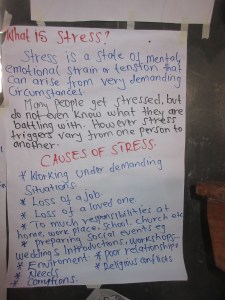 What IS Stress?
Stress is a state of mental,
emotional strain or tension that
Can arise from very demanding
Circumstances
Many people get stressed, but
do not even know what they are
battling with. However stress
triggers vary from one person to
another.
CAUSES OF STRESS.
* Working under demanding
Situations.
* Loss of a job.
* Loss of a loved one.
* To much responsibilities at
home, work place, School, Church etc
* preparing Social events eg
weddings Introductions, workshops
* Enviroment * poor relationships
* Needs * Religious conflicts
* Conditions.